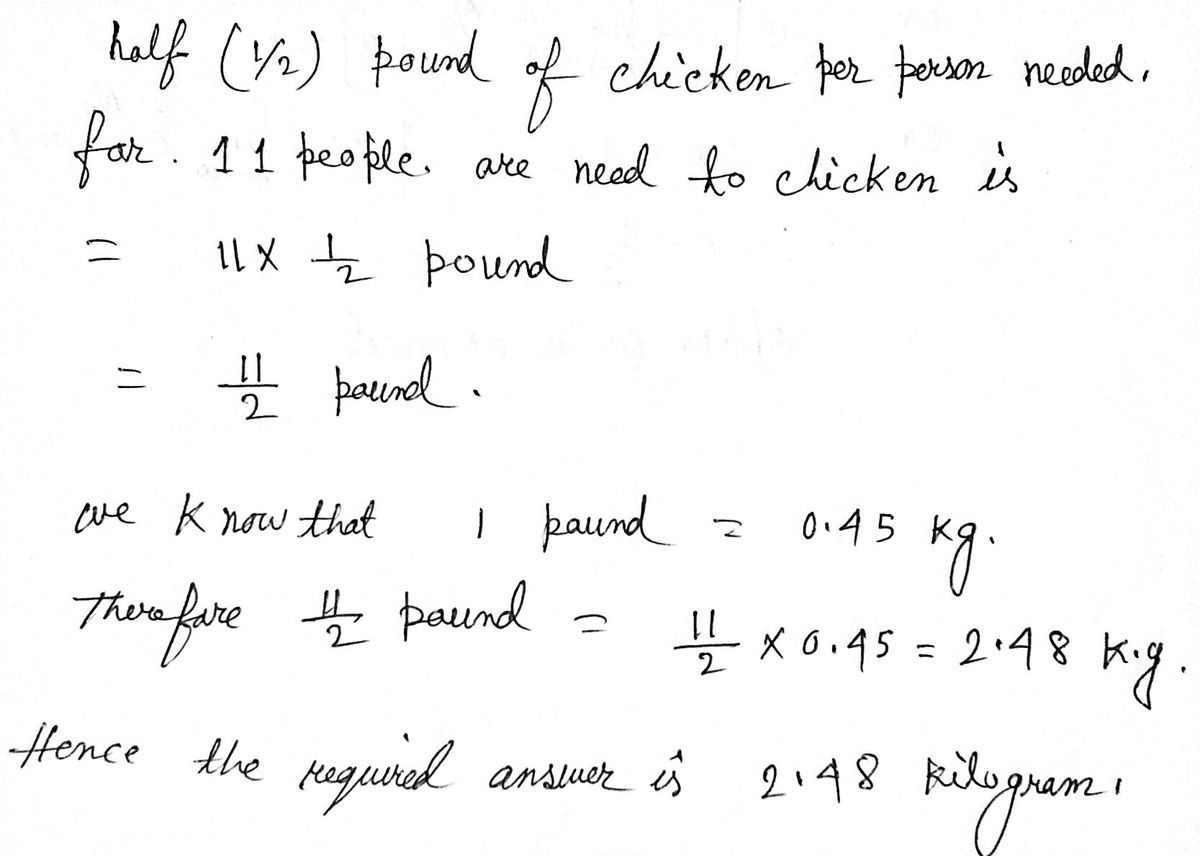 half (1/2) pound of chicken per person needed.
for. 11 people. are need to chicken is
= 11 x 1/2 pound
= 11/2 pound.
we know that 1 pound = 0.45 kg.
Therefore 11/2 pound = 11/2 x 0.45 = 2.48 K.g.
Hence the required answer is 2.48 kilogram.